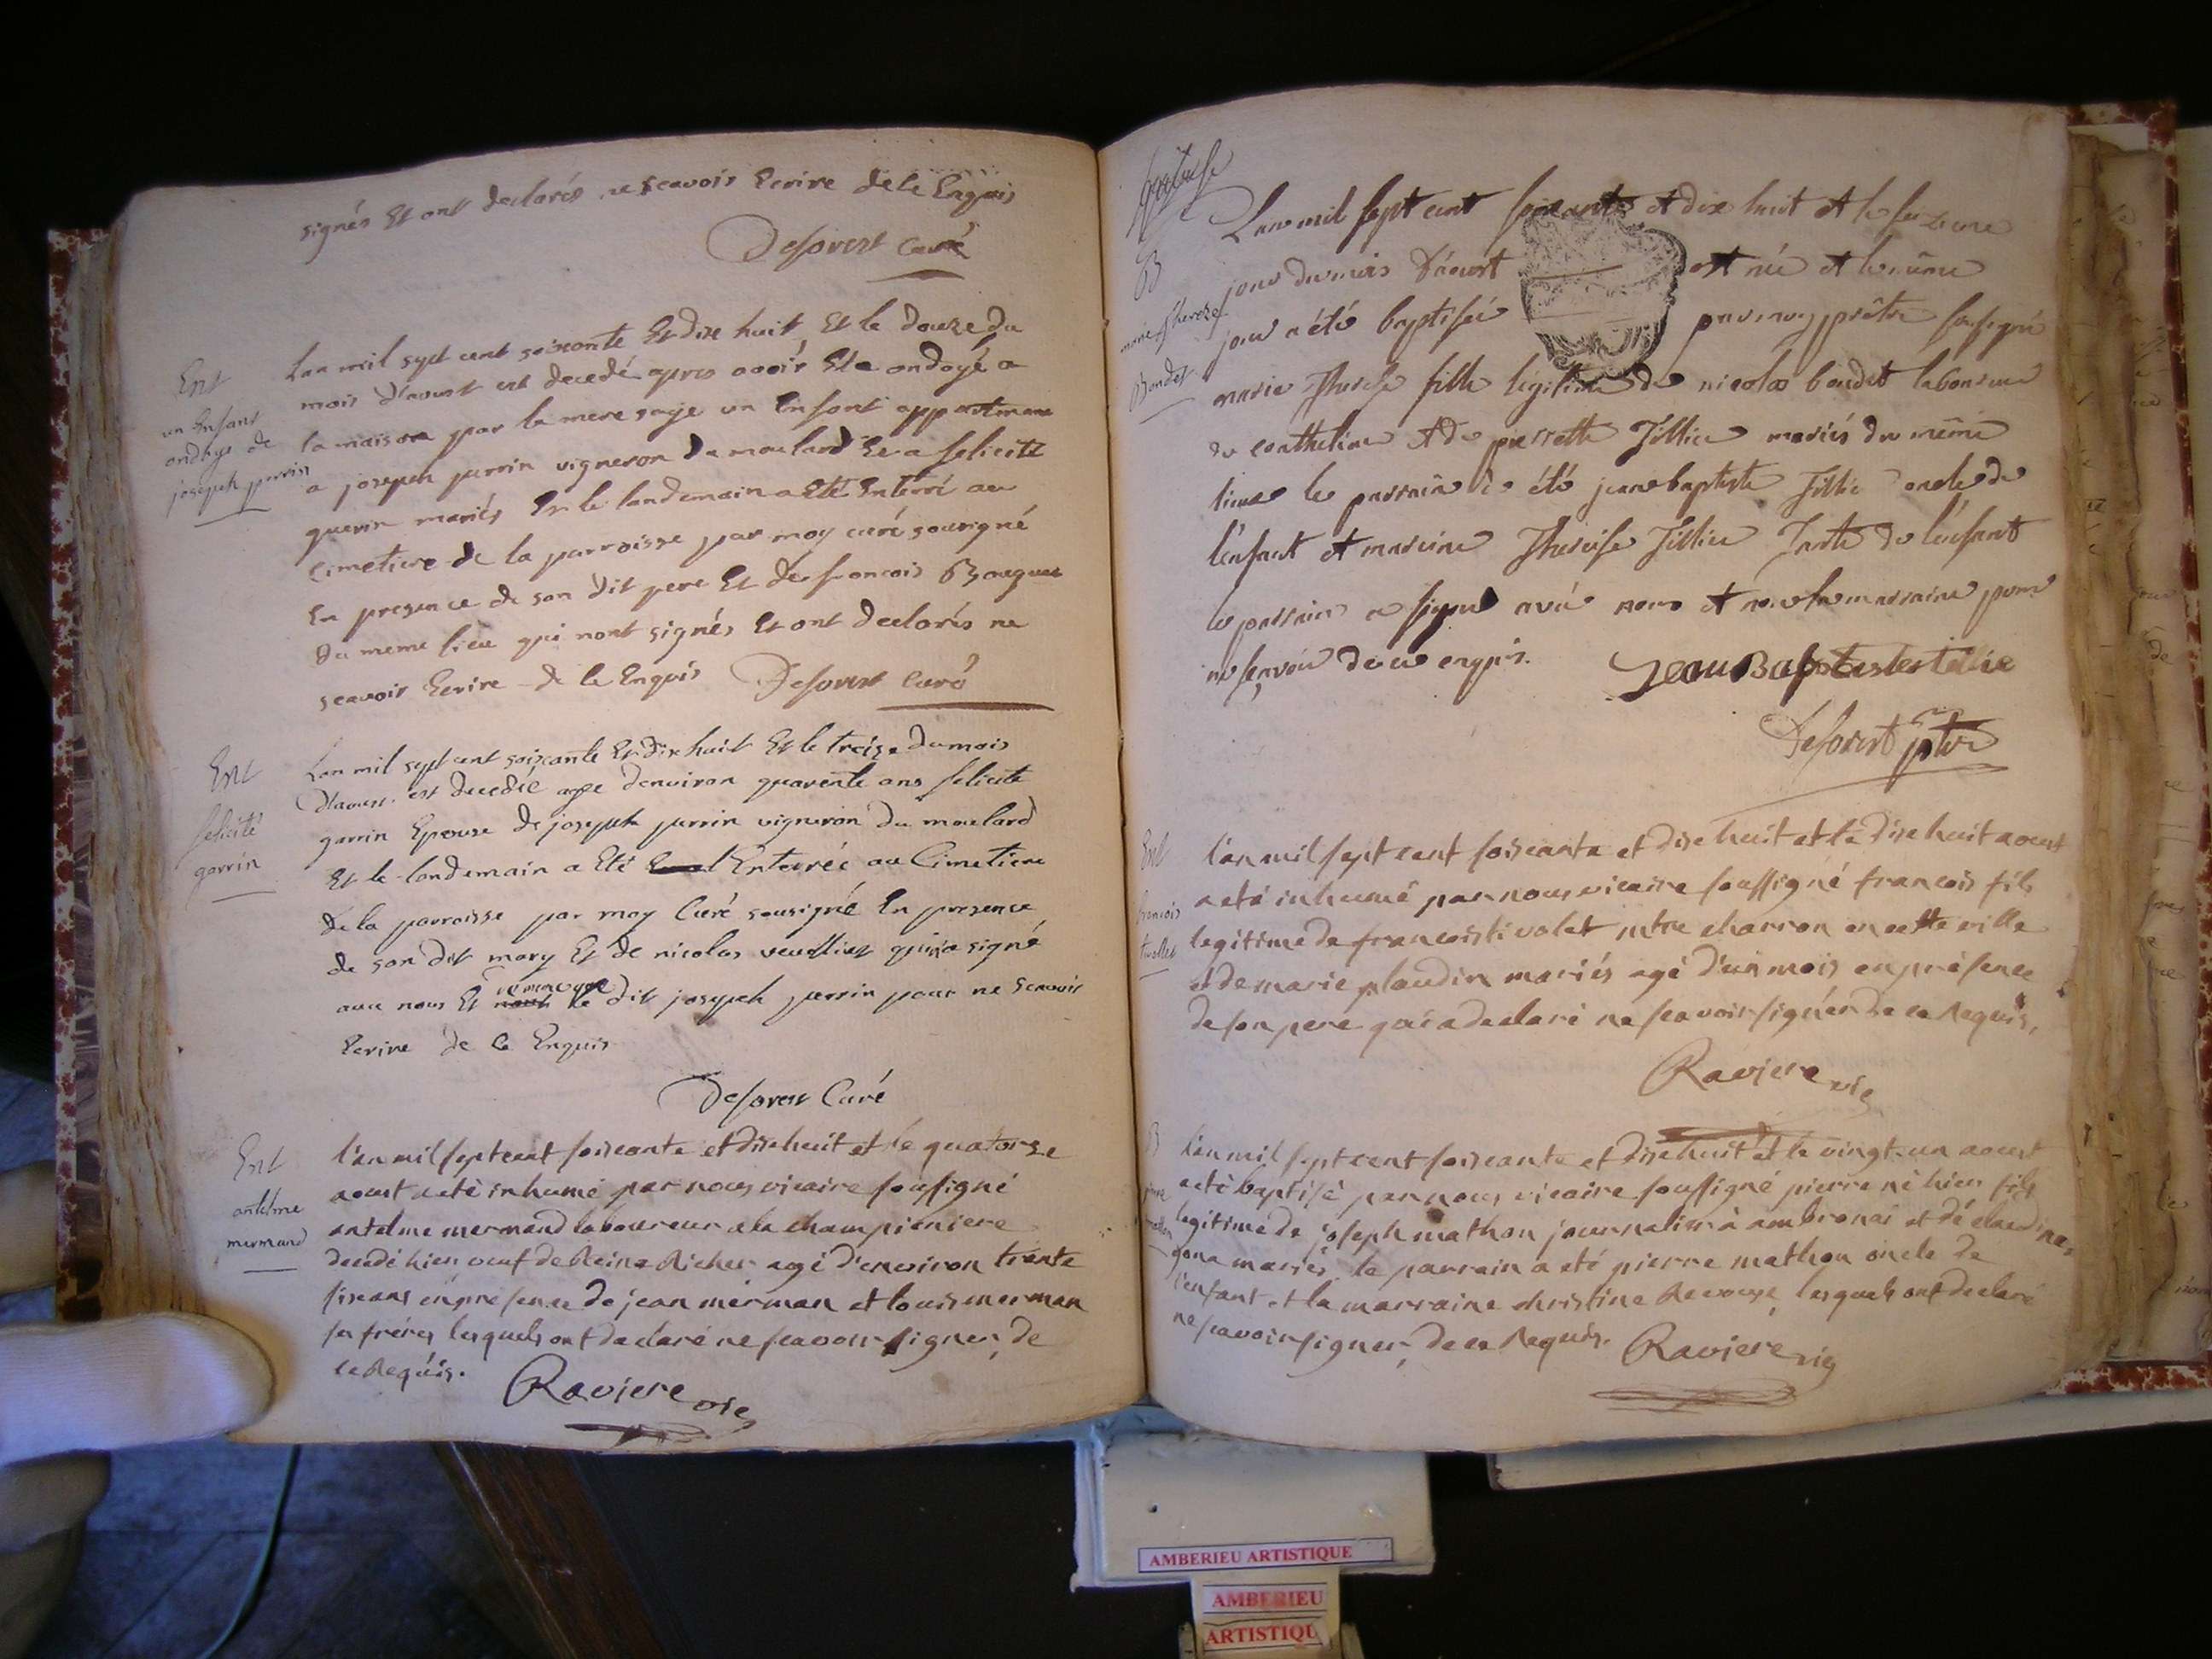 signés Et ont declarés ne scavoir Ecrire de le Enquis
Deforest Curé
Ent
un Enfant
ondoye de
joseph perrin
Lan mil sept cent soixante Et dix huit Et le douze du
mois d'aoust est decedé apres avoir Ete ondoyé a
la maison par la mere sage un Enfant appartenant
a joseph perrin vigneron du moulard Et a felicité
guerin mariés Et le landemain a Eté Enterré au
Cimetiere de la parroisse par moy curé sousigné
En presence de son dit pere Et de francois
du meme lieu qui nont signés Et ont declarés ne
scavoir Ecrire de le Enquis Deforest Curé
Ent
felicité
garrin
Lan mil sept cent soixante Et dix huit Et le treize du mois
d'aoust est decedée agee denviron quarente ans felicite
garrin Epouse de joseph perrin vigneron du moulard
Et le landemain a Eté Enterrée au Cimetiere
de la parroisse par moy Curé sousigné En presence
de son dit mary Et de nicolas qui a signé
avec nous Et le dit joseph perrin pour ne scavoir
Ecrire de ce Enquis
Deforest Curé
Ent
antelme
mermand
l'an mil sept cent soixante et dix huit et le quatorze
aoust a eté inhumé par nous vicaire soussigné
antelme mermand laboureur a la championiere
decedé hier veuf de Reine Richer agé d'environ trente
six ans en présence de jean merman et louis merman
ses fréres lesquels ont declaré ne scavoir signer, de
ce Requis.
Raviere vic
B
marie therese
Boudet
L'an mil sept cent soixante et dix huit et le seizieme
jour du mois d'aoust est née et le même
jour a été baptisée par moy prêtre sousigné
marie Therese fille légitime de nicolas boudet laboureur
de et de pierrette Tillier mariés du même
lieu le parrain a été jean baptiste Tillié oncle de
l'enfant et marraine Therese Tillier Tante de l'enfant
le parrain a signé avec nous et non la marraine pour
ne sçavoir de ce enquis. Jean Baptiste tillié
Deforest ptre
Ent
francois
tivollet
l'an mil sept cent soixante et dix huit et le dix huit aoust
a eté inhumé par nous vicaire soussigné francois fils
legitime de francois tivolet mtre charron en cette ville
et de marie plaudin mariés agé d'un mois, en présence
de son pere qui a declaré ne scavoir signer de ce Requis,
Raviere vic
B
pierre
mathon
l'an mil sept cent soixante et dix huit et le vingt-un aoust
a eté baptisé par nous vicaire soussigné pierre né hier fils
legitime de joseph mathon journalier à ambronai et de claudine
gona mariés, le parrain a eté pierre mathon oncle de
l'enfant et la marraine christine Revoux, lesquels ont declaré
ne scavoir signer, de ce Requis. Raviere vic
AMBERIEU ARTISTIQUE
AMBERIEU
ARTISTIQU